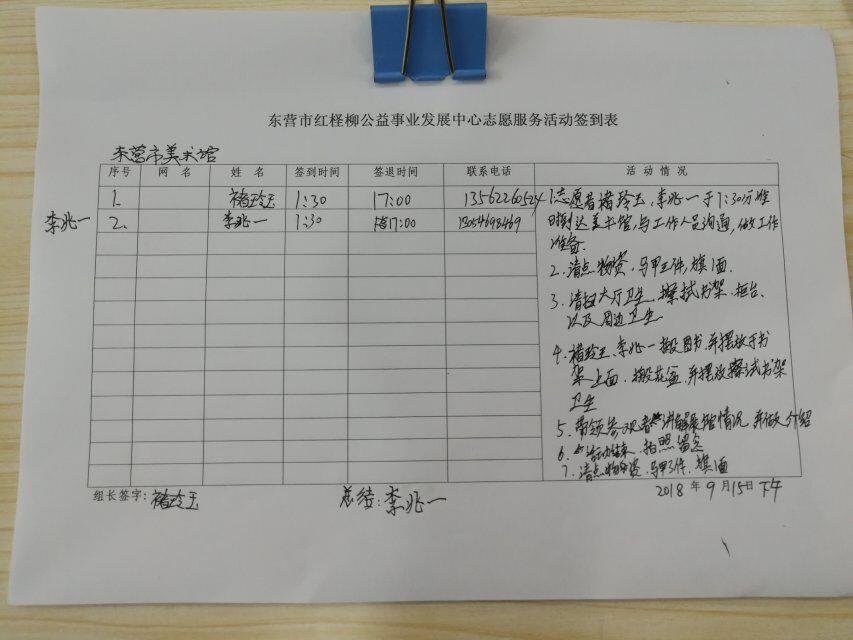 东营市红柽柳公益事业发展中心志愿服务活动签到表
东营市美术馆
序号 网名 姓名 签到时间 签退时间 联系电话 活动情况
1. 褚玲玉 1:30 17:00 13562260524
李兆一 2. 李兆一 1:30 17:00 13054698469
1.志愿者褚玲玉,李兆一于1:30分准
时到达美术馆,与工作人员沟通,做工作
准备.
2.清点物资.马甲三件,旗1面.
3.清扫大厅卫生.擦拭书架.柜台、
以及周边卫生.
4.褚玲玉、李兆一搬图书.并摆放于书
架上面.搬花盆.并摆放擦拭书架
卫生
5.带领参观者讲解展馆情况.并做介绍
6.活动结束.拍照留念
7.清点物资.马甲3件.旗1面
组长签字:褚玲玉 总结:李兆一 2018年9月15日下午